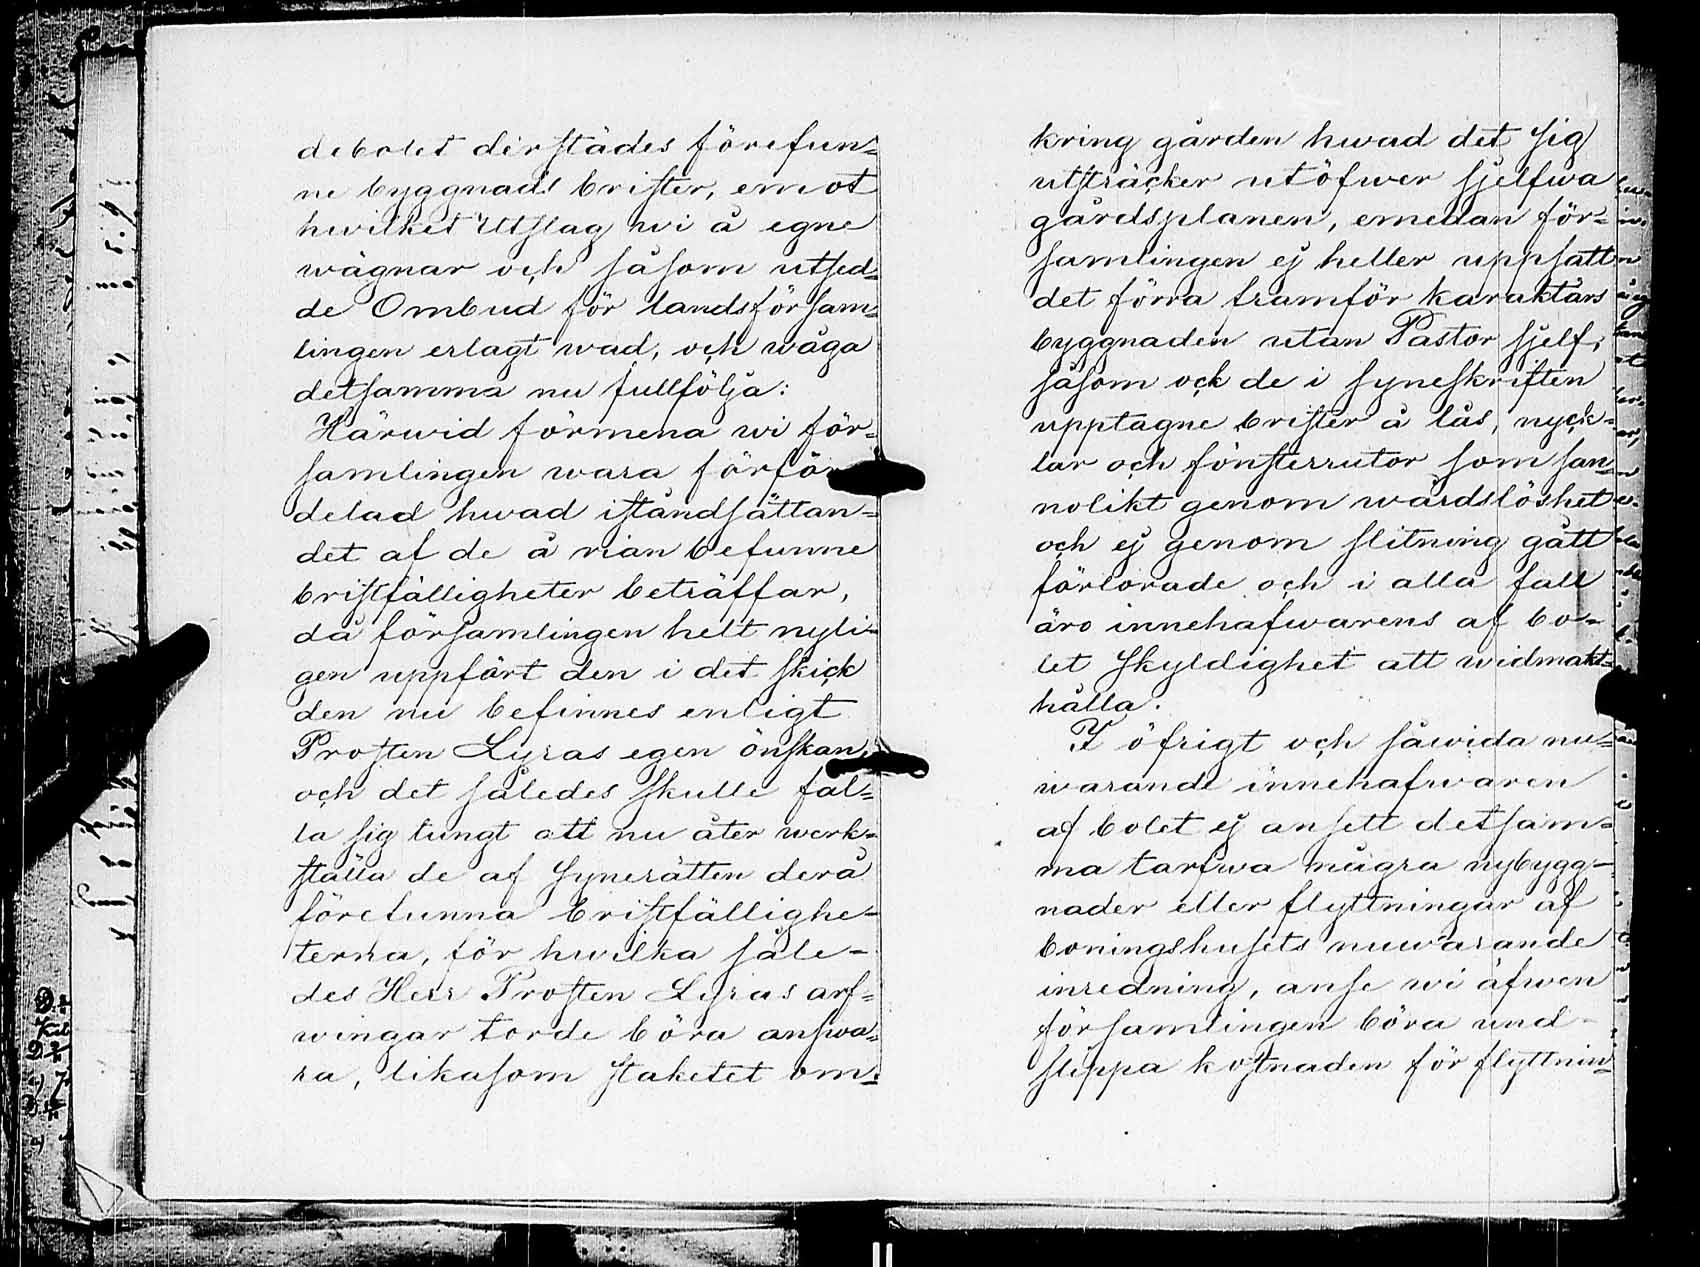 debolet derstädes förefun-
ne byggnads brister, emot
hwilket Utslag wi å egne
wägnar och såsom utsed-
de Ombud för landsförsam-
lingen erlagt wad, och wåga
detsamma nu fullfölja:
Härwid förmena wi för-
samlingen wara förför-
delad hwad iståndsättan-
det af de å rian befunne
bristfälligheter beträffar,
då församlingen helt nyli-
gen uppfört den i det skick
den nu befinnes enligt
Prosten Lyras egen önskan
och det således skulle fal-
la sig tungt att nu åter werk-
ställa de af Synerätten derå
förefunna bristfällighe-
terna, för hwilka såle-
des Herr Prosten Lyras arf-
wingar torde böra answa-
ra, likasom staketet om-
kring gården hwad det sig
utsträcker utöfwer sjelfwa
gårdsplanen, emedan för-
samlingen ej heller uppsatt
det förra framför karaktärs
byggnaden utan Pastor sjelf,
såsom ock de i syneskriften
upptagne brister å lås, nyck-
lar och fönsterrutor som san-
nolikt genom wårdslöshet
och ej genom slitning gått
förlorade och i alla fall
äro innehafwarens af bo-
let skyldighet att widmakt-
hålla.
I öfrigt och såwida nu-
warande innehafwaren
af bolet ej ansett detsam-
ma tarfwa några nybygg-
nader eller flyttningar af
boningshusets nuwarande
inredning, anse wi äfwen
församlingen böra und-
slippa kostnaden för flyttnin-